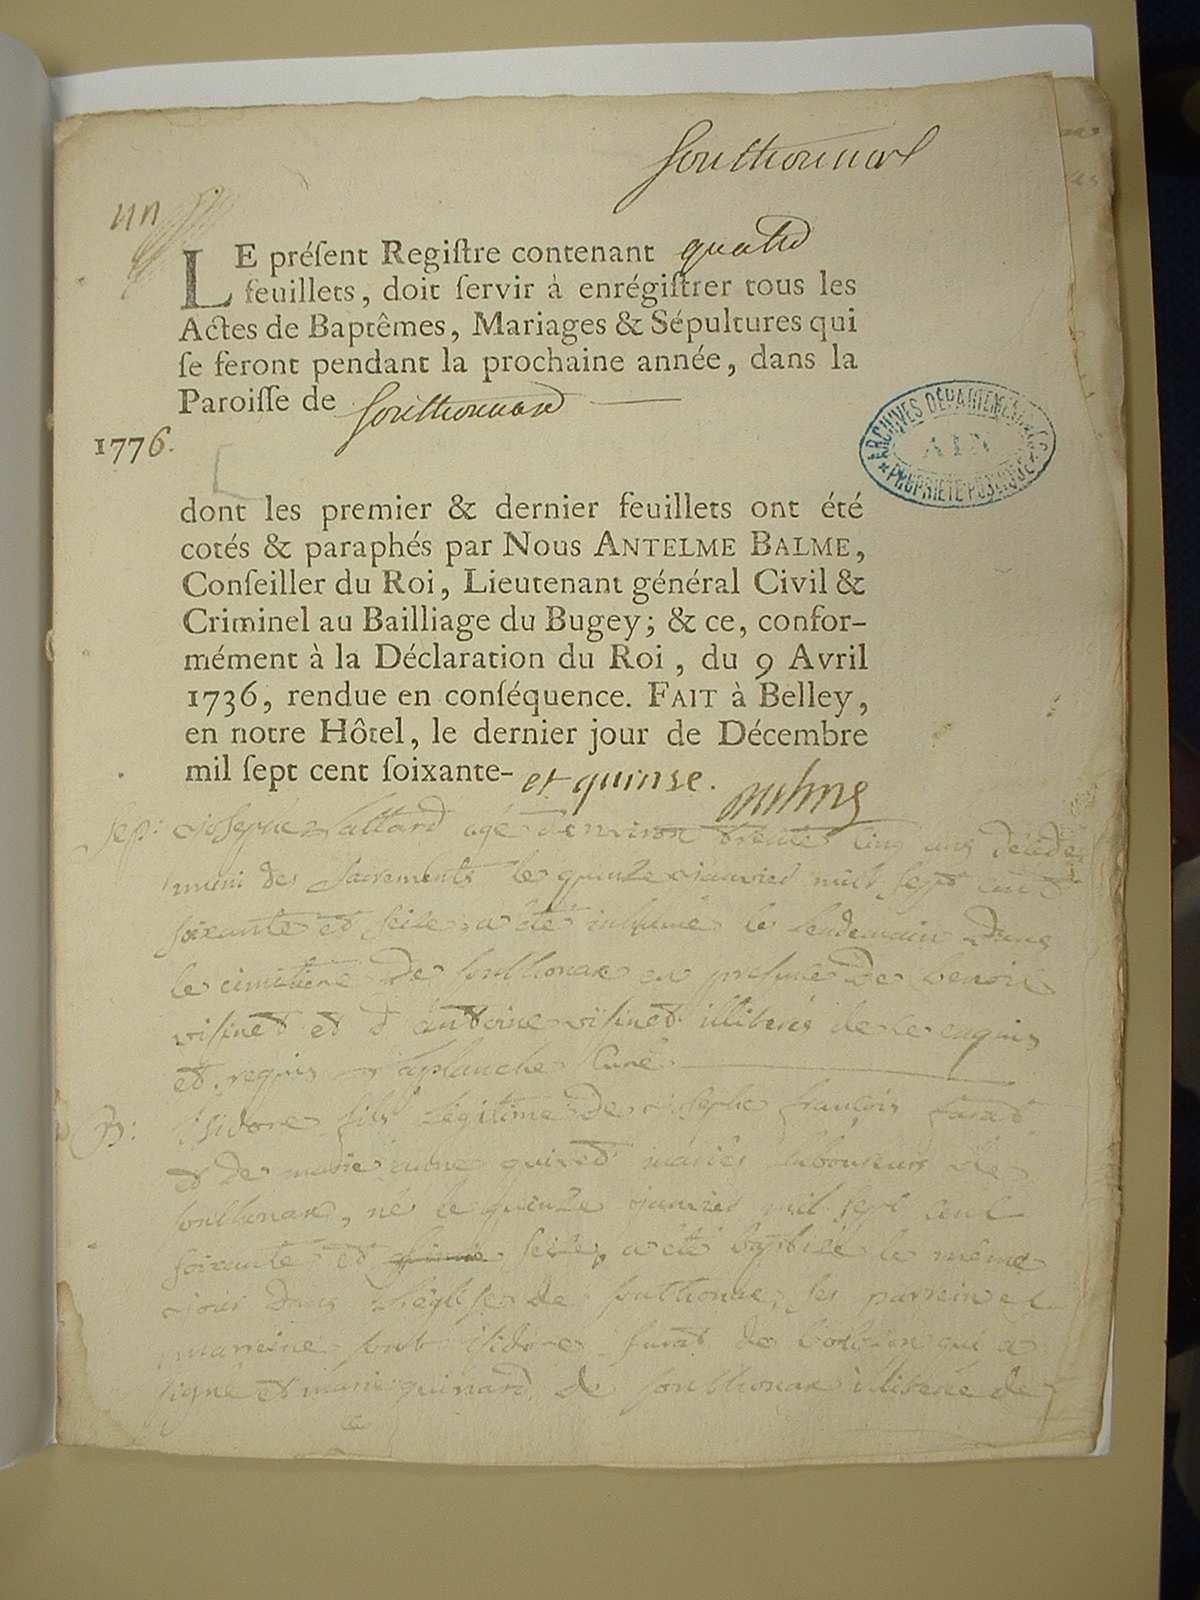 Southonnax
un
LE préſent Regiſtre contenant quatre
feuillets, doit ſervir à enrégiſtrer tous les
Actes de Baptêmes, Mariages & Sépultures qui
ſe feront pendant la prochaine année, dans la
Paroiſſe de Southonnax
1776.
ARCHIVES DÉPARTEMENTALES
AIN
PROPRIÉTÉ PUBLIQUE
dont les premier & dernier feuillets ont été
cotés & paraphés par Nous ANTELME BALME,
Conſeiller du Roi, Lieutenant général Civil &
Criminel au Bailliage du Bugey; & ce, confor-
mément à la Déclaration du Roi, du 9 Avril
1736, rendue en conſéquence. FAIT à Belley,
en notre Hôtel, le dernier jour de Décembre
mil ſept cent ſoixante- et quinse. Balme
sep: joseph agé d'environ trente cinq ans décédé
muni des sacrements le quinze janvier mil sept cent
soixante et seise, a été inhumé le lendemain dans
le cimetiere de southonax en presence de benoit
et d'antoine illiterés de ce enquis
et requis Laplanche Curé
B: isidore fils légitime de joseph françois
et de marie mariés laboureurs de
southonax, né le quinze janvier mil sept cent
soixante et seise, a été baptisé le même
jour dans l'église de southonax, ses parrein et
marreine sont isidore de qui a
signé et marie de southonax illiterée de
ce